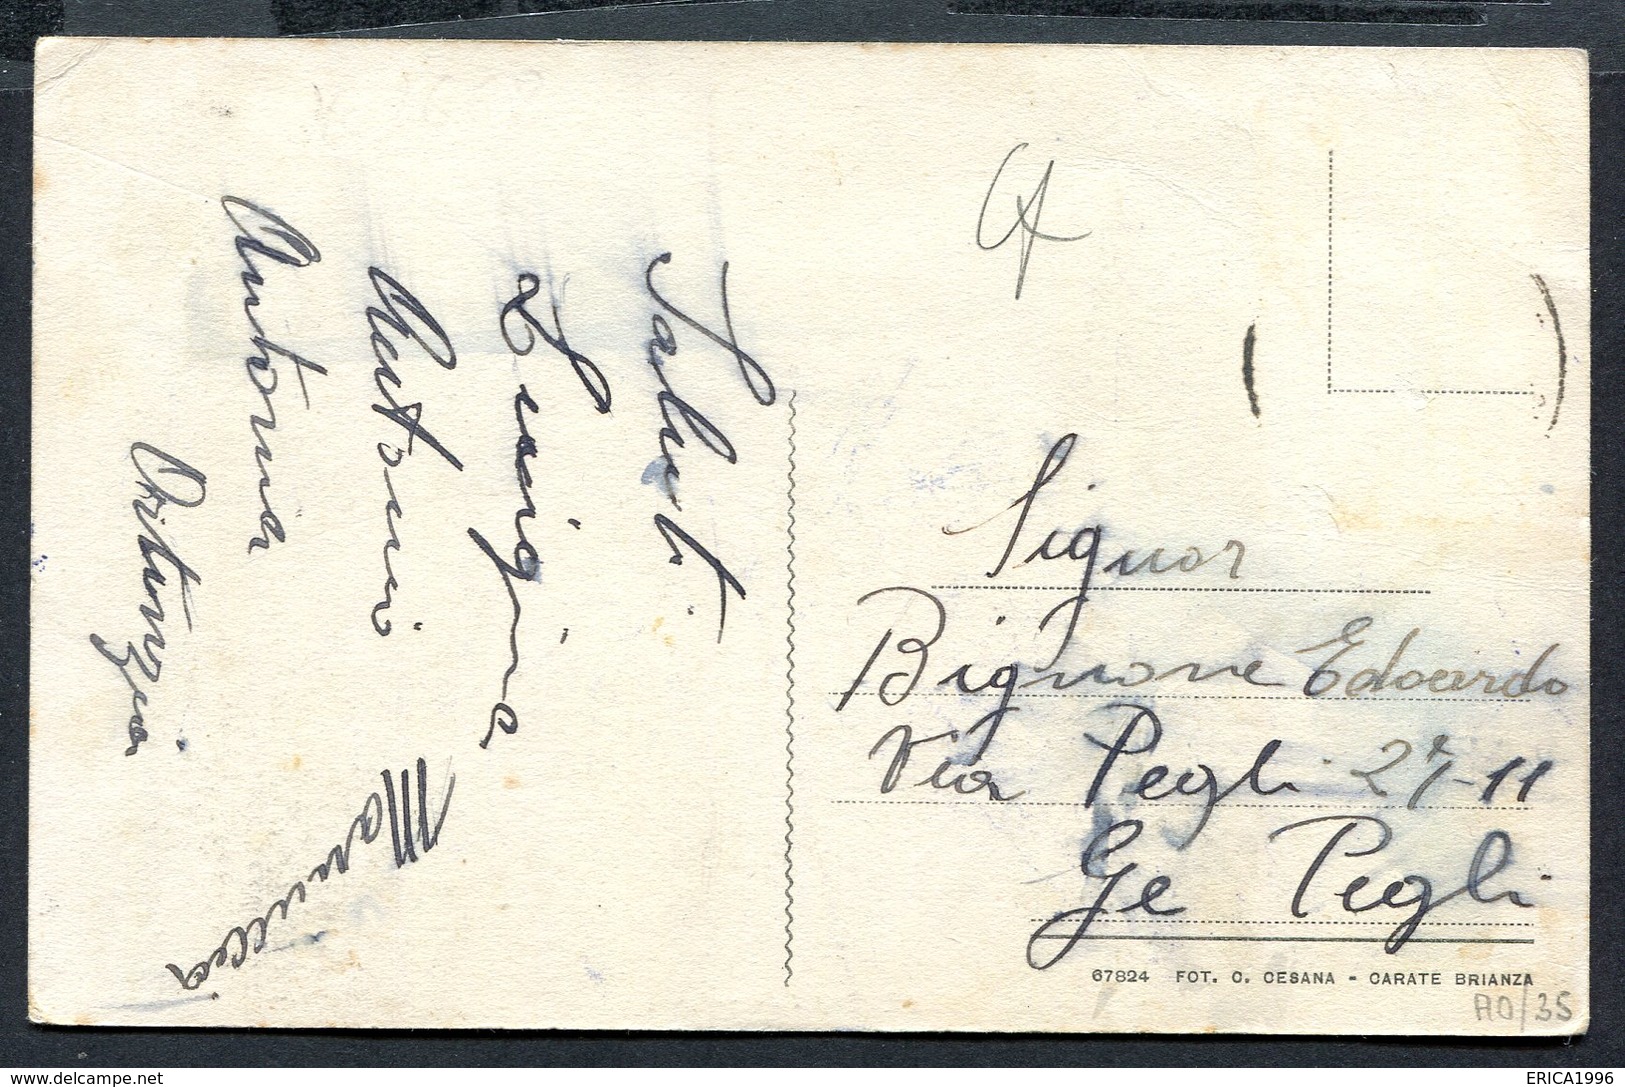 Saluti
Luigia
Antonio
Antonia
Mariuccia
Signor
Bignone Edoardo
Via Pegli 27-11
Ge Pegli
67824 FOT. C. CESANA - CARATE BRIANZA
AO/35
delcampe.net
ERICA1996